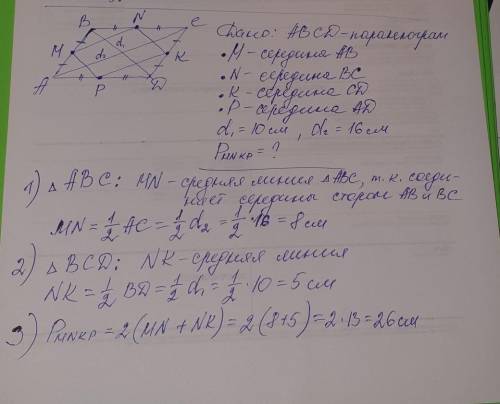 B N C
d₁
M d₂ K
A P D
Дано: ABCD-паралелограм
• M - середина AB
• N - середина BC
• K - середина CD
• P - середина AD
d₁ = 10 см, d₂ = 16 см
P_MNKP = ?
1) △ ABC: MN - средняя линия △ABC, т.к. соеди-
няет середины сторон AB и BC
MN = 1/2 AC = 1/2 d₂ = 1/2 · 16 = 8 см
2) △ BCD: NK - средняя линия
NK = 1/2 BD = 1/2 d₁ = 1/2 · 10 = 5 см
3) P_MNKP = 2(MN + NK) = 2(8+5) = 2·13 = 26 см